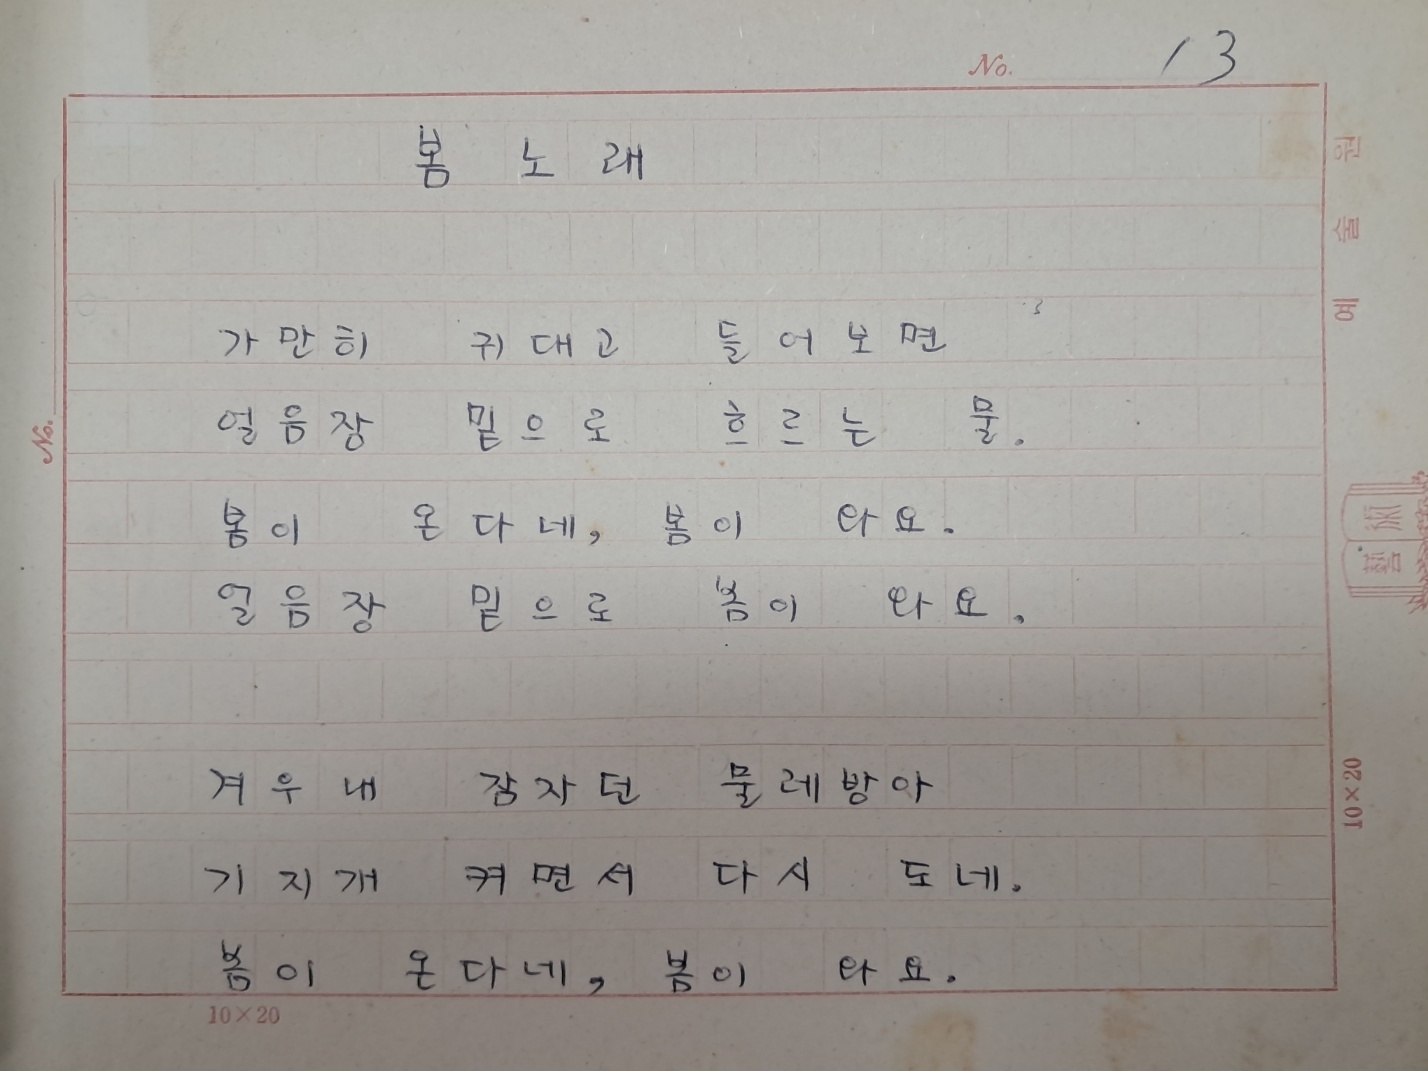 No. 13
봄 노래
가만히 귀대고 들어보면
얼음장 밑으로 흐르는 물.
봄이 온다네, 봄이 와요.
얼음장 밑으로 봄이 와요.
겨우내 잠자던 물레방아
기지개 켜면서 다시 도네.
봄이 온다네, 봄이 와요.
10×20
No.
예술원
藝術
10×20